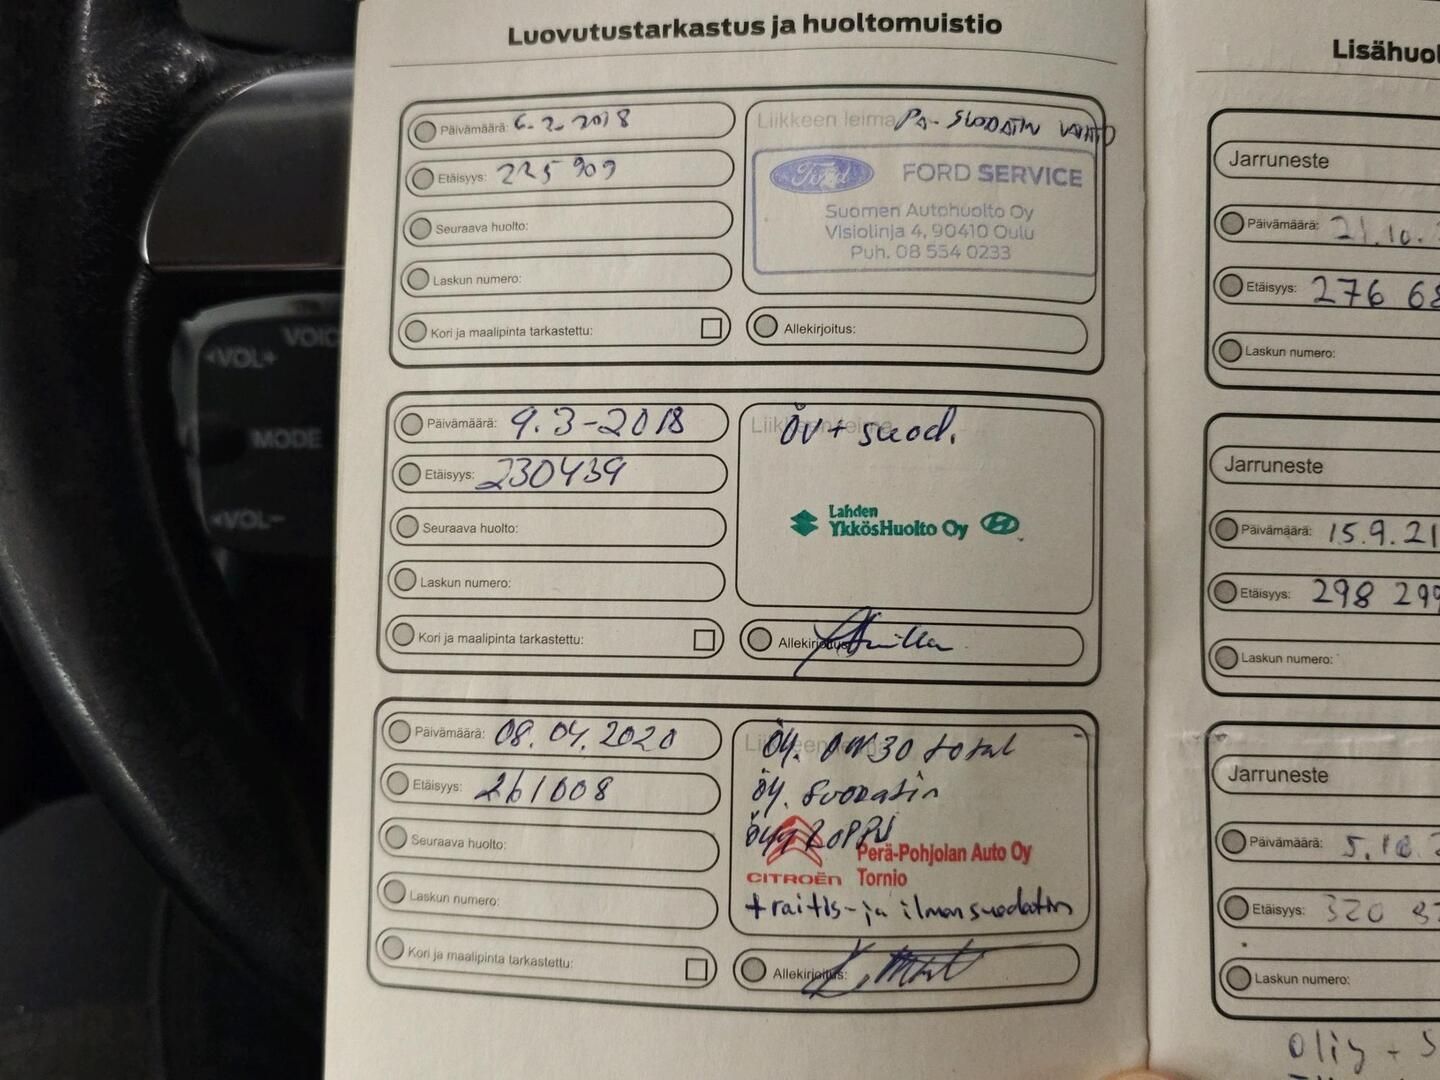 Luovutustarkastus ja huoltomuistio
Päivämäärä: 6.2.2018
Etäisyys: 225 909
Seuraava huolto:
Laskun numero:
Kori ja maalipinta tarkastettu:
Liikkeen leima PA-SUODATIN VAIHTO
Ford FORD SERVICE
Suomen Autohuolto Oy
Visiolinja 4, 90410 Oulu
Puh. 08 554 0233
Allekirjoitus:
Päivämäärä: 9.3-2018
Etäisyys: 230439
Seuraava huolto:
Laskun numero:
Kori ja maalipinta tarkastettu:
Liikkeen leima
Öv + suod.
Lahden
YkkösHuolto Oy
Allekirjoitus:
Päivämäärä: 08.04.2020
Etäisyys: 261008
Seuraava huolto:
Laskun numero:
Kori ja maalipinta tarkastettu:
Liikkeen leima
Öly. 0W30 total
öly. suodatin
Perä-Pohjolan Auto Oy
CITROËN Tornio
+ raitis- ja ilmansuodatin
Allekirjoitus:
Lisähuol
Jarruneste
Päivämäärä: 21.10.
Etäisyys: 276 68
Laskun numero:
Jarruneste
Päivämäärä: 15.9.21
Etäisyys: 298 299
Laskun numero:
Jarruneste
Päivämäärä: 5.10.
Etäisyys: 320
Laskun numero:
Öljy +
VOL+
VOIC
MODE
VOL-